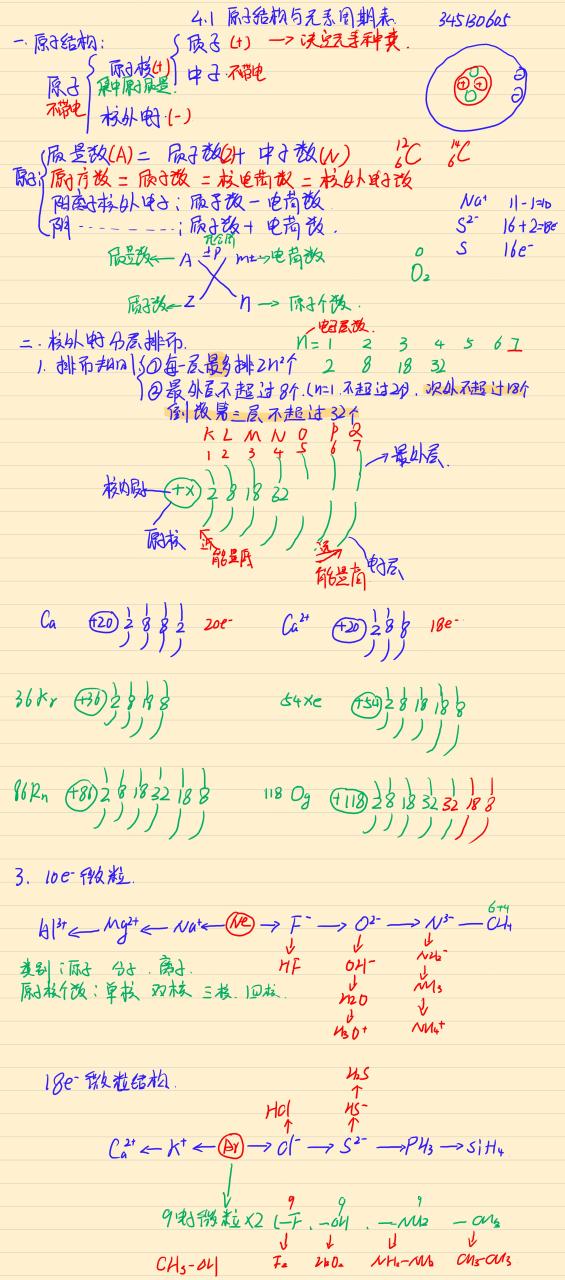 4.1 原子结构与元素周期表 345130605
一. 原子结构:
原子 不带电
原子核(+) 集中原子质量
质子 (+) → 决定元素种类.
中子 不带电
核外电子 (-)
原子:
质量数(A) = 质子数(Z)+ 中子数(N) ¹²₆C ¹⁴₆C
原子序数 = 质子数 = 核电荷数 = 核外电子数
阳离子核外电子: 质子数 - 电荷数 Na⁺ 11-1=10
阴 --------: 质子数 + 电荷数. S²⁻ 16+2=18e⁻
S 16e⁻
质量数 ← A ±P m± → 电荷数 O
O₂
质子数 ← Z n → 原子个数.
二. 核外电子分层排布. 电子层数.
n= 1 2 3 4 5 6 7
1. 排布规则 ① 每一层最多排2n²个 2 8 18 32
② 最外层不超过8个.(n=1 不超过2个). 次外不超过18个
倒数第三层不超过32个
K L M N O P Q
1 2 3 4 5 6 7 → 最外层.
+x 2 8 18 32
原子核
近 能量低 远 能量高 电子层
Ca +20 2 8 8 2 20e⁻ Ca²⁺ +20 2 8 8 18e⁻
36Kr +36 2 8 18 8 54Xe +54 2 8 18 18 8
86Rn +86 2 8 18 32 18 8 118 Og +118 2 8 18 32 32 18 8
3. 10e⁻微粒.
6+4
Al³⁺ ← Mg²⁺ ← Na⁺ ← Ne → F⁻ → O²⁻ → N³⁻ — CH₄
类别: 原子 分子. 离子.
HF OH⁻ NH₂⁻
原子核个数: 单核 双核 三核. 四核.
H₂O NH₃
H₃O⁺ NH₄⁺
18e⁻微粒结构.
H₂S
HCl HS⁻
Ca²⁺ ← K⁺ ← Ar → Cl⁻ → S²⁻ → PH₃ → SiH₄
9 9 9
9电子微粒×2 (-F. -OH. -NH₂ -CH₃
CH₃-OH F₂ H₂O₂ NH₂-NH₂ CH₃-CH₃